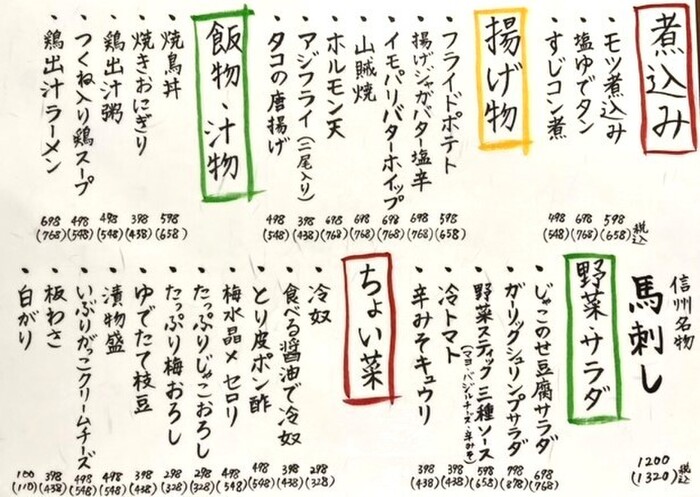 煮込み
・モツ煮込み 598 (658) 税込
・塩ゆでタン 698 (768)
・すじコン煮 498 (548)
揚げ物
・フライドポテト 598 (658)
・揚げジャガバター塩辛 698 (768)
・イモパリバターホイップ 698 (768)
・山賊焼 698 (768)
・ホルモン天 698 (768)
・アジフライ(二尾入り) 398 (438)
・タコの唐揚げ 498 (548)
飯物・汁物
・焼鳥丼 598 (658)
・焼きおにぎり 398 (438)
・鶏出汁粥 498 (548)
・つくね入り鶏スープ 498 (548)
・鶏出汁ラーメン 698 (768)
信州名物
馬刺し 1200 (1320) 税込
野菜・サラダ
・じゃこのせ豆腐サラダ 698 (768)
・ガーリックシュリンプサラダ 798 (878)
・野菜スティック 三種ソース 598 (658)
(マヨ・バジルチーズ・辛みそ)
・冷トマト 398 (438)
・辛みそキュウリ 398 (438)
ちょい菜
・冷奴 298 (328)
・食べる醤油で冷奴 398 (438)
・とり皮ポン酢 498 (548)
・梅水晶×セロリ 498 (548)
・たっぷりじゃこおろし 298 (328)
・たっぷり梅おろし 298 (328)
・ゆでたて枝豆 398 (438)
・漬物盛 498 (548)
・いぶりがっこクリームチーズ 498 (548)
・板わさ 398 (438)
・白がり 100 (110)